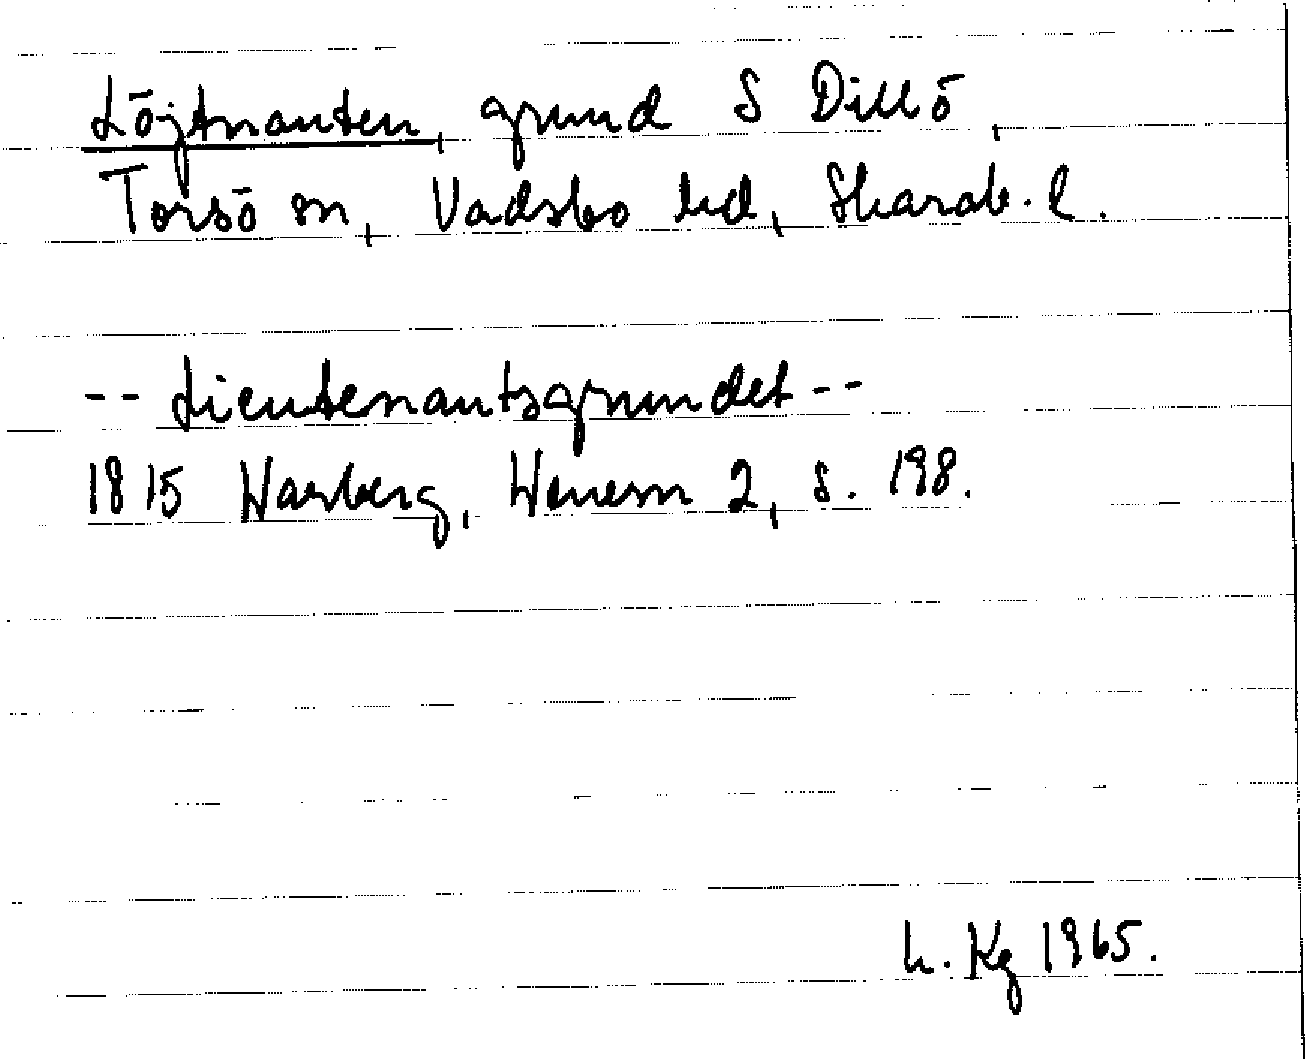 Löjtnanten, grund S Dillö,
Torsö sn, Vadsbo hd, Skarab. l.
-- Lieutenantsgrundet --
1815 Warberg, Wenern 2, s. 198.
L. Kg 1965.